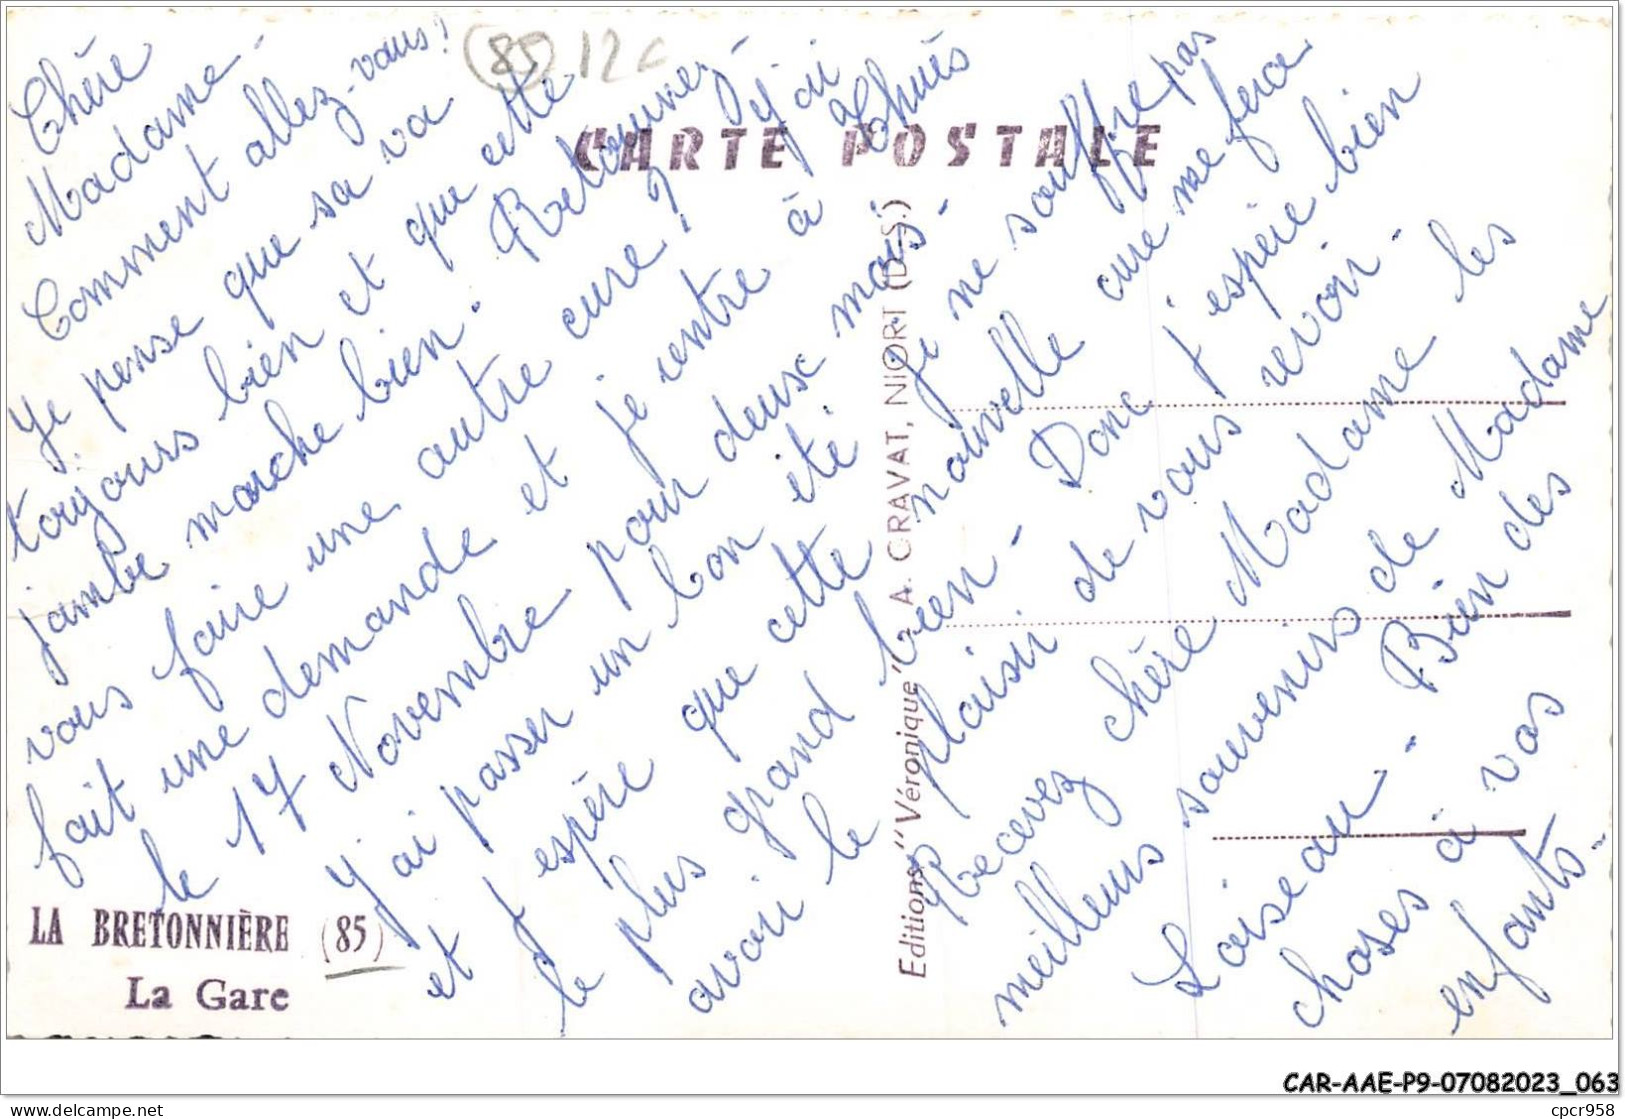 (85) 12c
CARTE POSTALE
Chère
Madame -
Comment allez-vous!
Je pense que sa va
toujours bien et que cette
jambe marche bien. Retournez-
vous faire une autre cure! j'ai
fait une demande et je rentre à
le 17 Novembre pour deux mois -
J'ai passer un bon été je ne souffre pas
et j'espère que cette nouvelle cure me fera
le plus grand bien - Donc j'espère bien
avoir le plaisir de vous revoir -
Recevez chère Madame les
meilleurs souvenirs de Madame
Loiseau - Bien des
choses à vos
enfants -
Editions "Véronique" A. CRAVAT, NIORT (D.S.)
LA BRETONNIÈRE (85)
La Gare
CAR-AAE-P9-07082023_063
www.delcampe.net
cpcr958